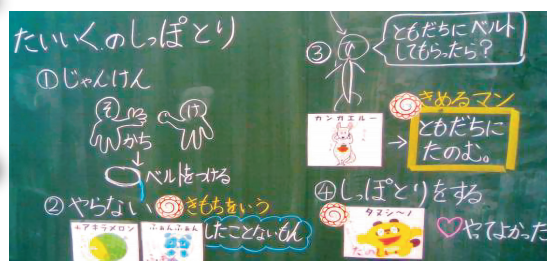 たいいくのしっぽとり
①じゃんけん
そ
け
かち
ベルトをつける
②やらない
きもちをいう
アキラメロン
ふぁんふぁん
したことないもん
③
ともだちにベルト
してもらったら?
カンガエルー
きめるマン
ともだちに
たのむ。
④しっぽとりをする
タヌシ〜ノ
やってよかった